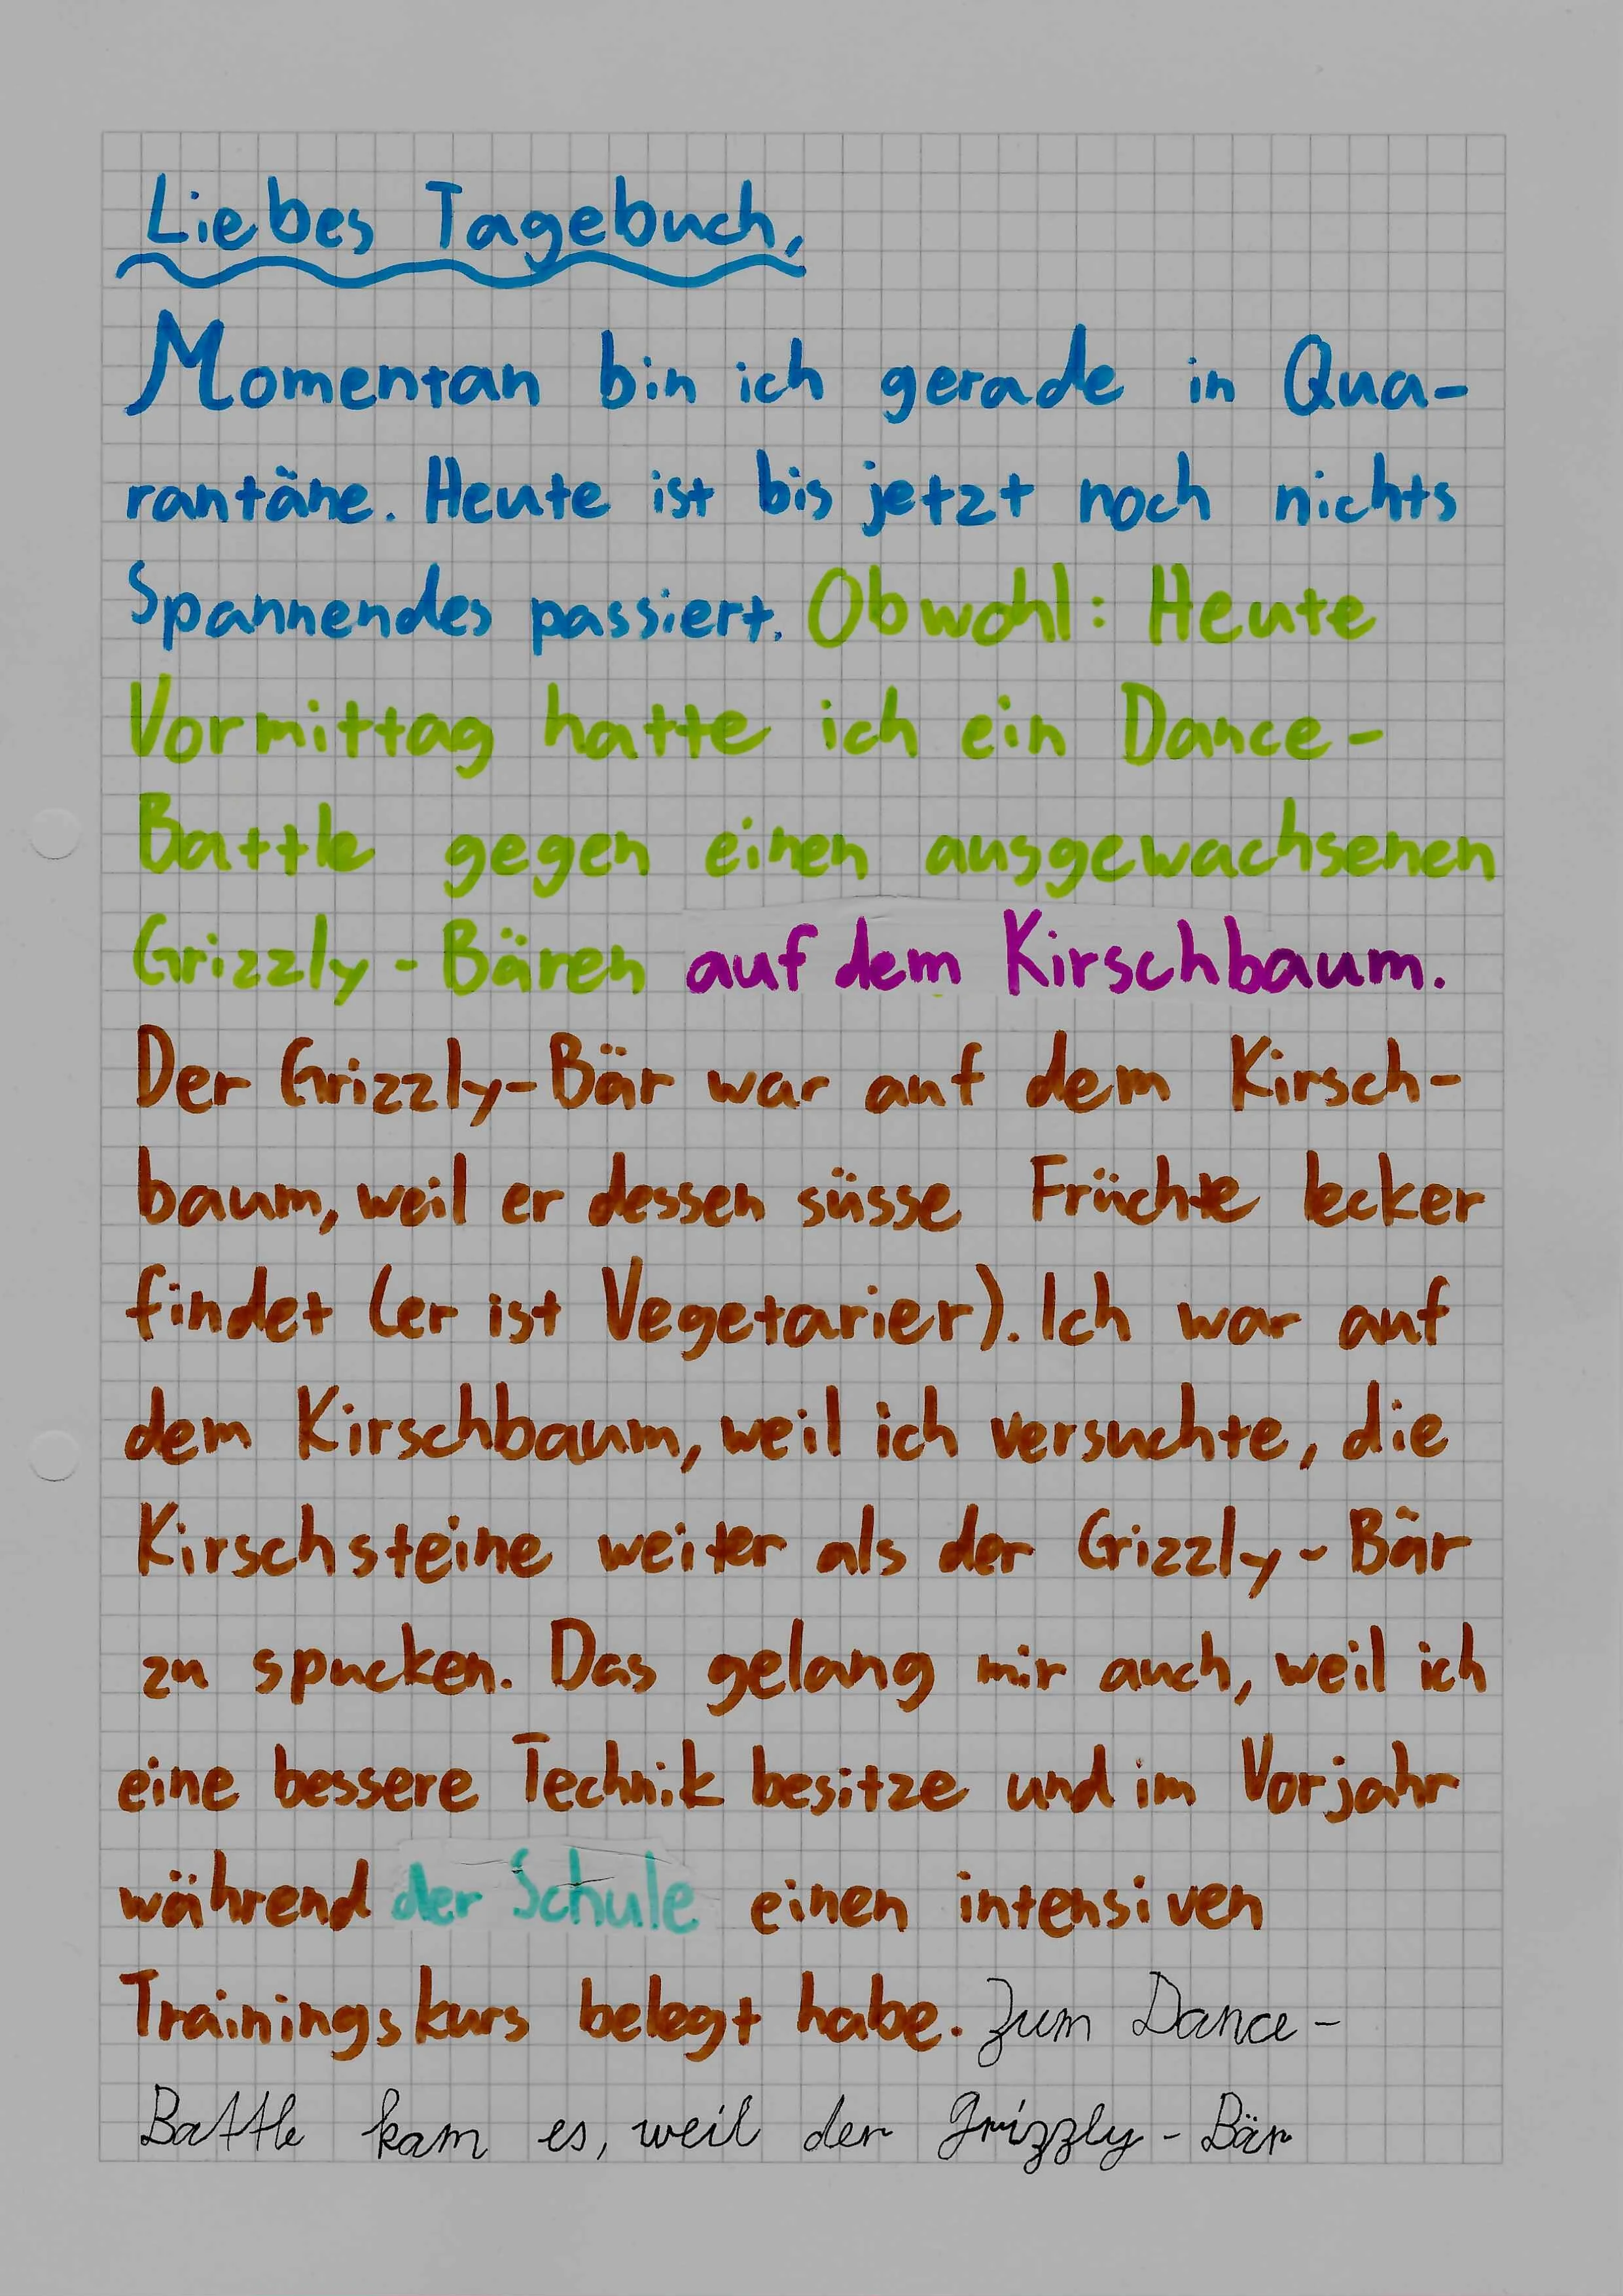 Liebes Tagebuch,
Momentan bin ich gerade in Qua-
rantäne. Heute ist bis jetzt noch nichts
Spannendes passiert. Obwohl: Heute
Vormittag hatte ich ein Dance-
Battle gegen einen ausgewachsenen
Grizzly-Bären auf dem Kirschbaum.
Der Grizzly-Bär war auf dem Kirsch-
baum, weil er dessen süsse Früchte lecker
findet (er ist Vegetarier). Ich war auf
dem Kirschbaum, weil ich versuchte, die
Kirschsteine weiter als der Grizzly-Bär
zu spucken. Das gelang mir auch, weil ich
eine bessere Technik besitze und im Vorjahr
während der Schule einen intensiven
Trainingskurs belegt habe. Zum Dance-
Battle kam es, weil der Grizzly-Bär